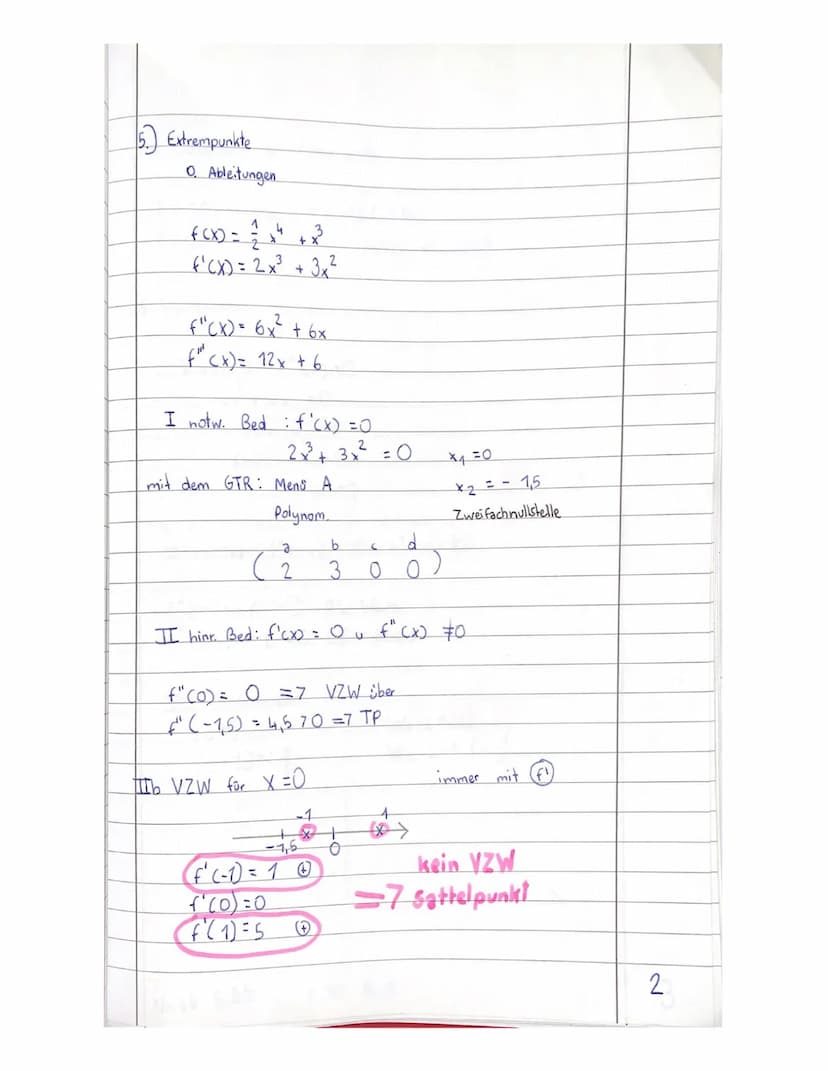 5.) Extrempunkte
0. Ableitungen
f(x) = 1/2 x⁴ + x³
f'(x) = 2x³ + 3x²
f''(x) = 6x² + 6x
f'''(x) = 12x + 6
I notw. Bed : f'(x) = 0
2x³ + 3x² = 0 x₁ = 0
mit dem GTR: Menü A x₂ = - 1,5
Polynom. Zweifachnullstelle
a b c d
( 2 3 0 0 )
II hinr. Bed: f'(x) = 0 u f''(x) ≠ 0
f''(0) = 0 => VZW über
f''(-1,5) = 4,5 > 0 => TP
IIb VZW für x = 0 immer mit f'
-1 1
x x
-1,5 0
f'(-1) = 1 + kein VZW
f'(0) = 0 => Sattelpunkt
f'(1) = 5 +
2